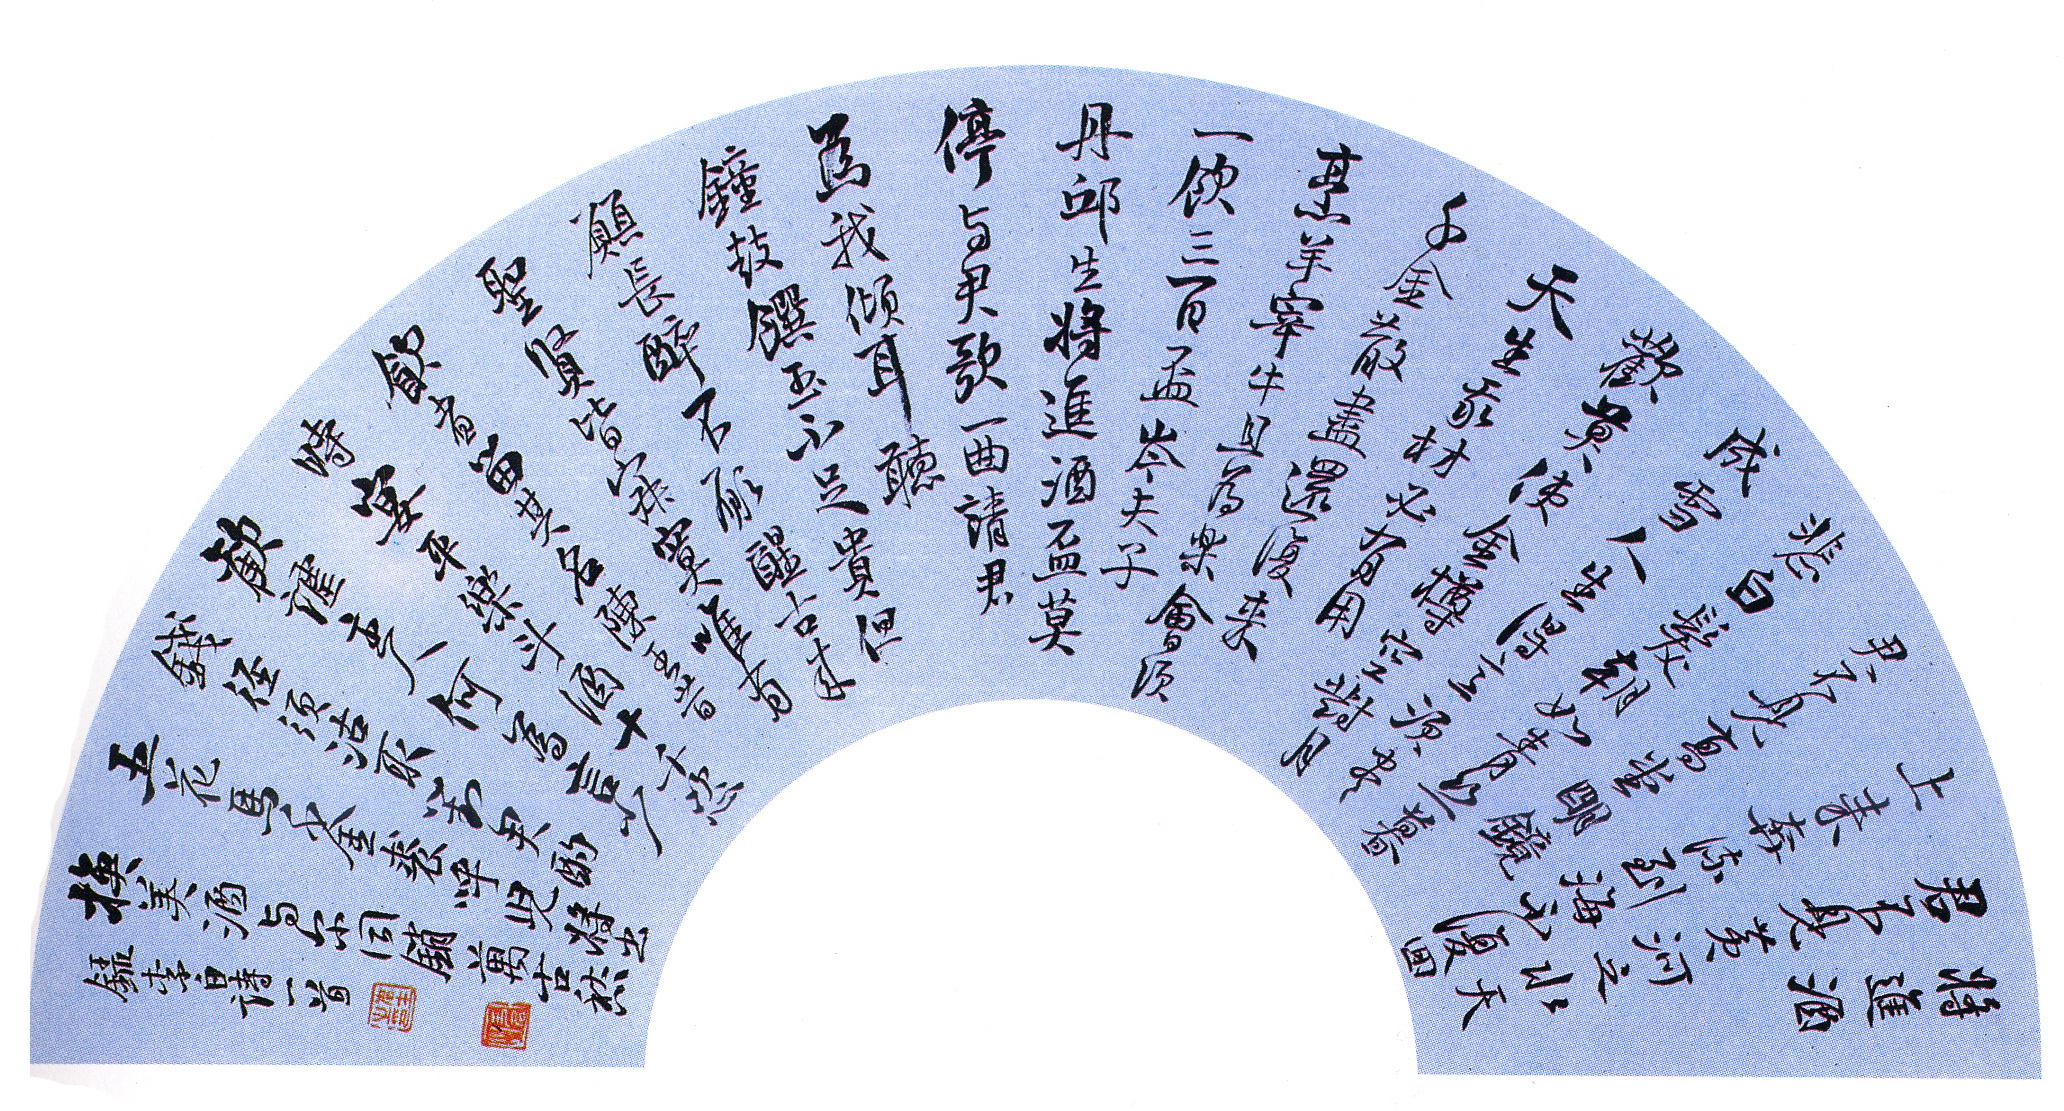 将進酒
君不見黄河之水天
上来奔流到海不復回
君不見高堂明鏡
悲白髮朝如青丝暮
成雪人生得意須尽
歡莫使金樽空對月
天生我材必有用
千金散盡還復来
烹羊宰牛且為楽會須
一飲三百盃岑夫子
丹邱生将進酒盃莫
停与君歌一曲請君
為我傾耳聽
鐘鼓饌玉不足貴但
願長醉不願醒古来
聖賢皆寂寞唯有
飲者留其名陳王昔
時宴平樂斗酒十千恣
歡謔主人何為言少
錢径須沽取对君酌
五花馬千金裘呼児将出
換美酒与尔同銷萬古愁
録李白詩一首